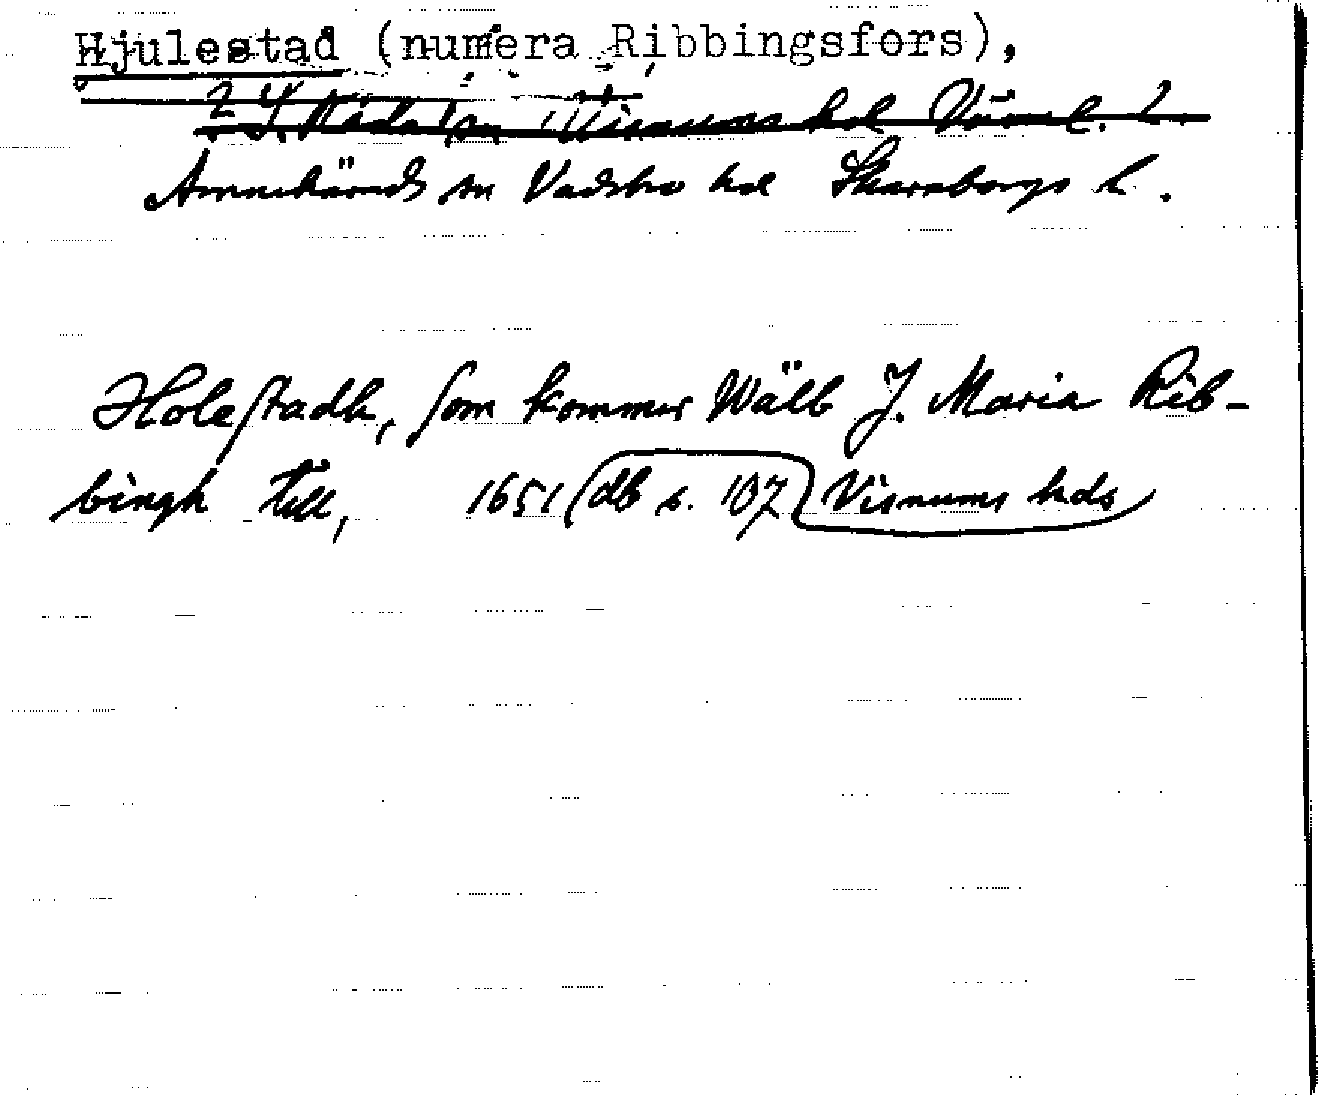 Hjulestad (numera Ribbingsfors),
Råda sn Visnums hd Värml. l.
Amnehärads sn Vadsbo hd Skaraborgs l.
Holestadh, som kommer Wälb J. Maria Rib-
bingh till, 1651 (db s. 107) Visnums hds